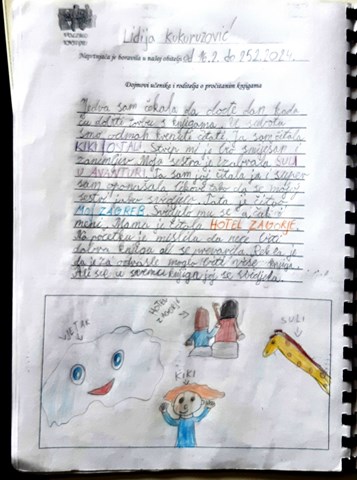 Lidija Kukuruzović
Naprtnjača je boravila u našoj obitelji od 16.2. do 25.2.2024.
Dojmovi učenika i roditelja o pročitanim knjigama
Jedva sam čekala da dođe dan kada
ću dobiti torbu s knjigama. U subotu
smo odmah krenuli čitati. Ja sam čitala
KIKI OSTAVI. Strip mi je bio smiješan i
zanimljiv. Moja sestra je izabrala SULI
U AVANTURI. Ja sam joj čitala ja i super
sam oponašala
sestri jako svidjelo. Tata je čitao
MOJ ZAGREB. Svidjelo mu se a čak i
meni. Mama je čitala HOTEL ZAGORJE.
Na početku je mislila da neće biti
dobra knjiga ali se prevarila. Rekla je
da je za odrasle moglo biti više knjiga.
Ali su se sve knjige joj se svidjela.
VJETAR
HOTEL
ZAGORJE
SULI
KIKI